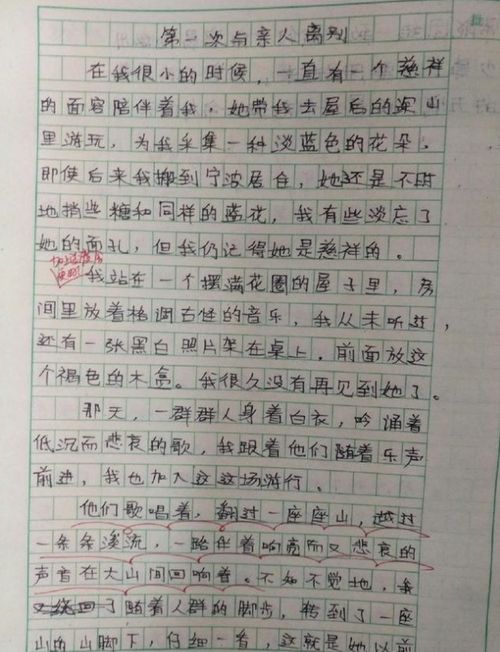 第一次与亲人离别
在我很小的时候，一直有一个慈祥
的面容陪伴着我，她带我去屋后的深山
里游玩，为我采集一种淡蓝色的花朵。
即使后来我搬到宁波居住，她还是不时
地捎些糖和同样的蓝花，我有些淡忘了
她的面孔，但我仍记得她是慈祥的。
我站在一个摆满花圈的屋子里，房
间里放着格调古怪的音乐，我从未听过，
还有一张黑白照片架在桌上，前面放这
个褐色的木盒。我很久没有再见到她了。
那天，一群群人身着白衣，吟诵着
低沉而悲哀的歌，我跟着他们随着乐声
前进，我也加入这这场游行。
他们歌唱着，翻过一座座山，越过
一条条溪流，一路伴着响亮而又悲哀的
声音在大山间回响着。不知不觉地，我
了随着人群的脚步，转到了一座
山的山脚下，仔细一看，这就是她以前